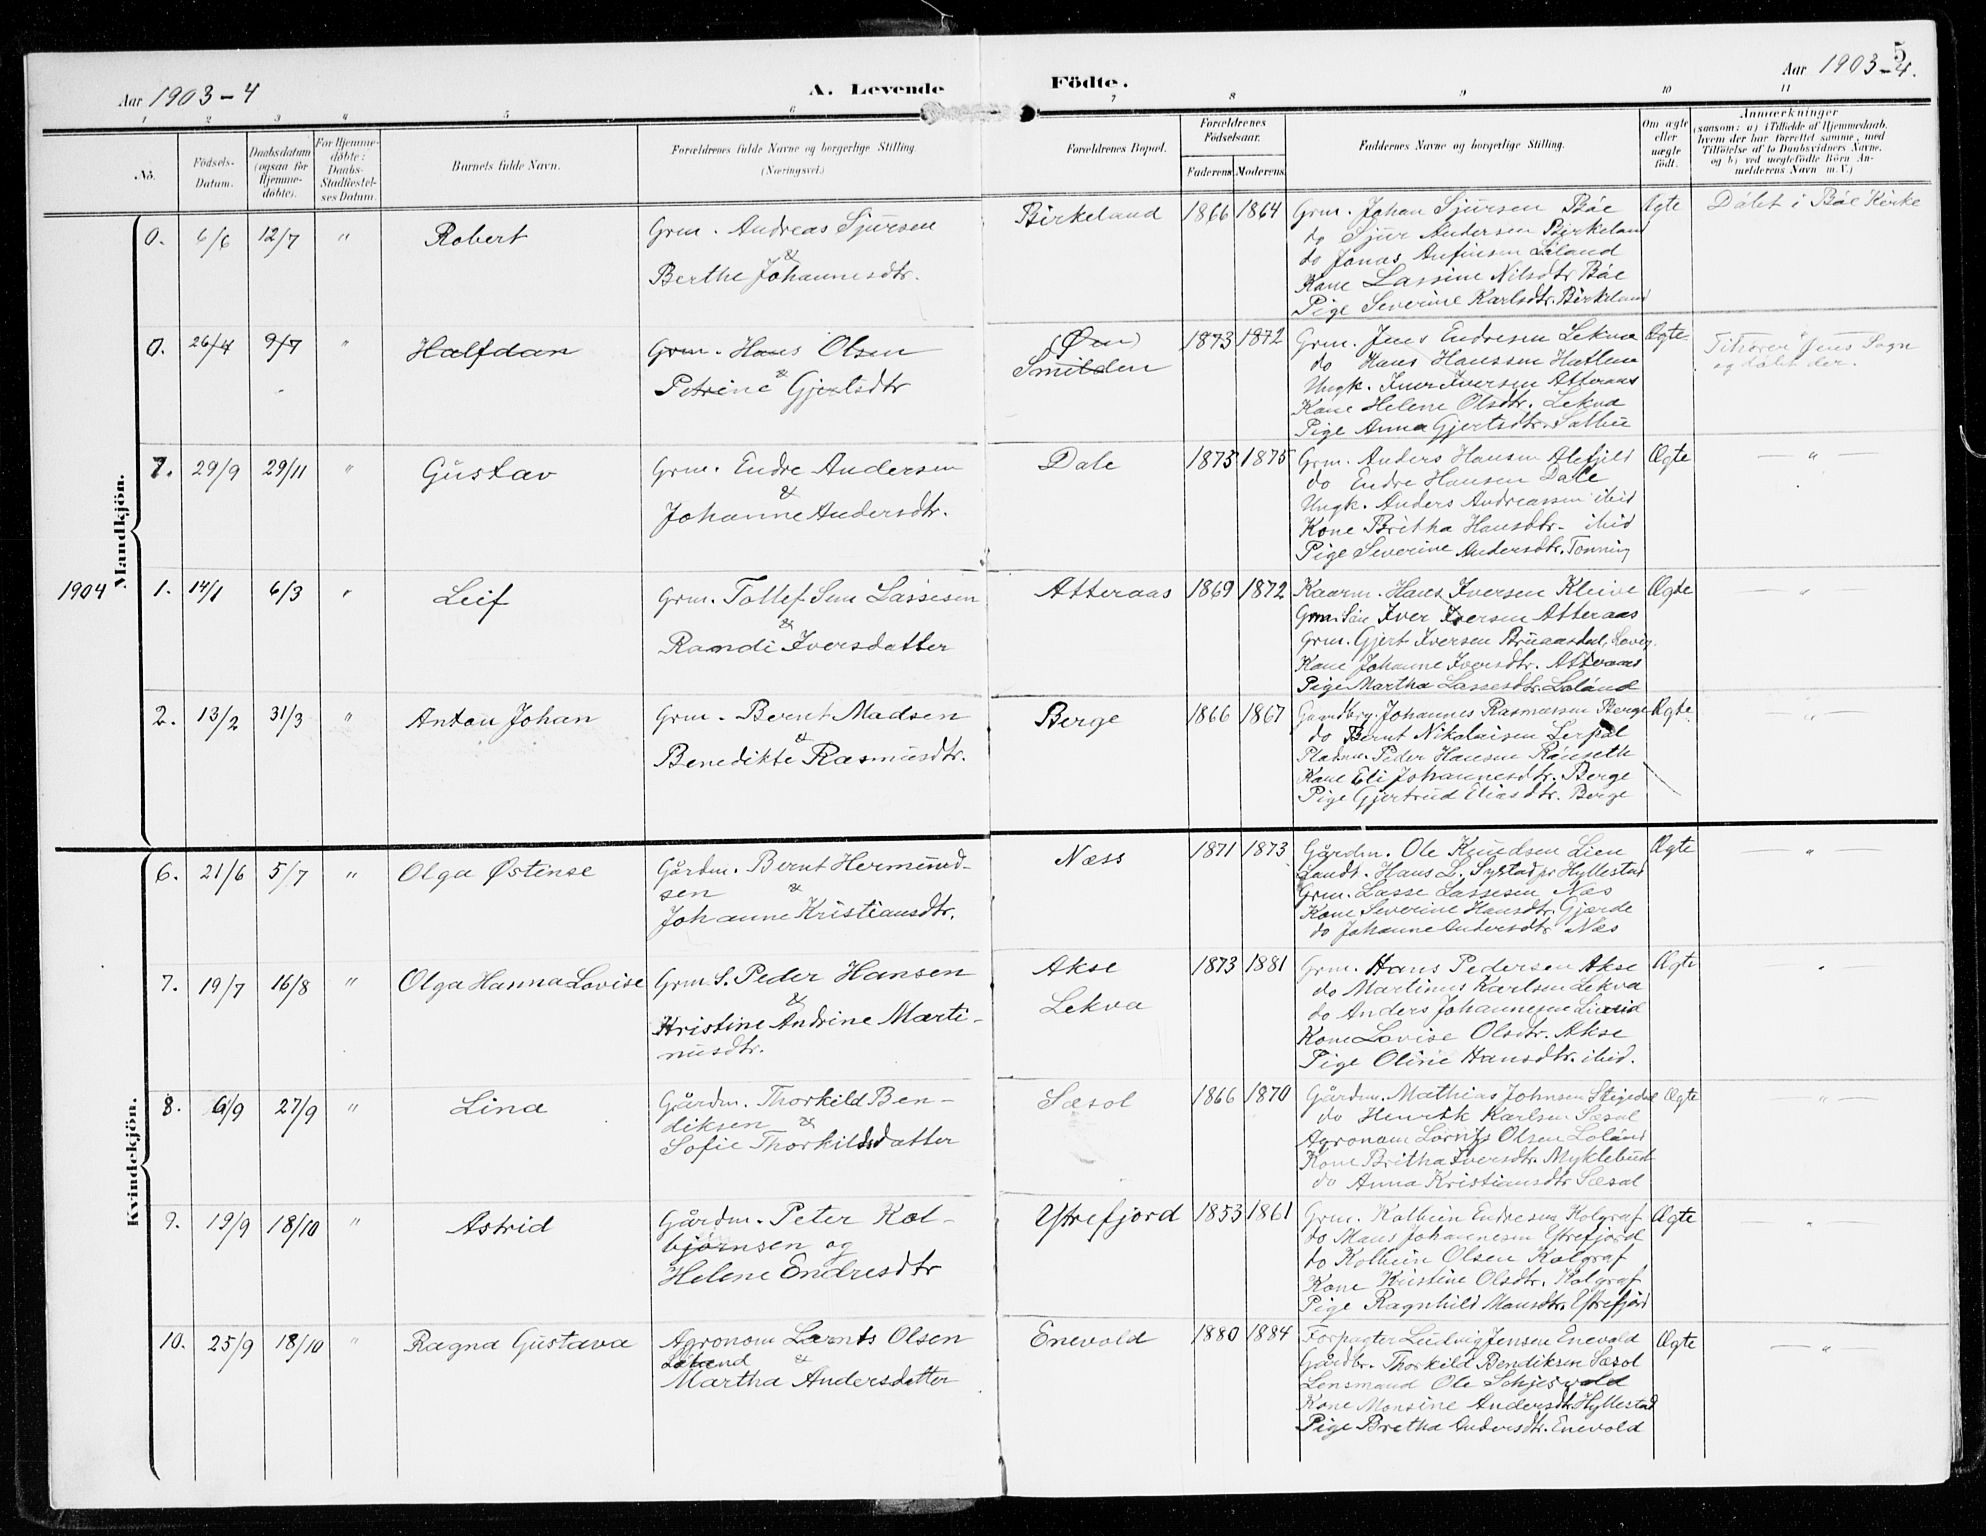 5
Aar 1903-4
A. Levende
Födte.
Aar 1903-4.
1 2 3 4 5 6 7 8 9 10 11
No.
Födsels-
Datum.
Daabsdatum
(ogsaa for
Hjemme-
døbte).
For Hjemme-
døbte:
Daabs-
Stadfæstel-
ses Datum.
Barnets fulde Navn.
Forældrenes fulde Navne og borgerlige Stilling.
(Næringsvei.)
Forældrenes Bopæl.
Forældrenes
Födselsaar.
Faderens Moderens
Faddernes Navne og borgerlige Stilling.
Om ægte
eller
uægte
födt.
Anmærkninger
(saasom: a) i Tilfælde af Hjemmedaab,
hvem der har forrettet samme, med
Tilföielse af to Daabsvidners Navne,
og b) ved uegtefödte Börn An-
melderens Navn m. V.)
Mandkjön.
0. 6/6 12/7 " Robert
Grm. Andreas Sjursen
&
Berthe Johannesdtr.
Birkeland 1866 1864
Grm. Johan Sjursen Bóe
do Sjur Andersen Birkeland
do Jonas Anfinsen Lóland
Kone Lassine Nilsdtr Bóe
Pige Severine Karlsdtr. Birkeland
Ægte
Dóbt i Bóe Kirke
0. 26/4 9/7 " Halfdan
Grm. Hans Olsen
&
Petrine Gjertsdtr
(Øen)
Smilden 1873 1872
Grm. Jens Endresen Lekva
do Hans Hanssen Hatlem
Ungk. Iver Iversen Atteraas
Kone Helene Olsdtr. Lekva
Pige Anna Gjertsdtr.
Ægte
Sogn
og dóbt der.
7. 29/9 29/11 " Gustav
Grm. Endre Andersen
&
Johanne Andersdtr.
Dale 1875 1875
Grm. Anders Hansen
do Endre Hansen Dale
Ungk. Anders Andreassen ibid
Kone Britha Hansdtr. ibid
Pige Severine Andersdtr. Tonning
Ægte
— " —
1904 1. 14/1 6/3 " Leif
Grm. Tollef Sem Lassesen
&
Randi Iversdatter
Atteraas 1869 1872
Kaarm. Hans Iversen Kleive
Grm. Sön Iver Iversen Atteraas
Grm. Gjert Iversen
Kone Johanne Iversdtr. Atteraas
Pige Martha Lassesdtr. Lóland
Ægte
— " —
2. 13/2 31/3 " Anton Johan
Grm. Bernt Madsen
&
Benedikte Rasmusdtr.
Berge 1866 1867
Gaardbrg. Johannes Rasmussen Berge
do Bernt Nikolaisen
Pladsm. Peder Hansen
Kone Eli Johannesdtr. Berge
Pige Gjertrud Eliasdtr. Berge
Ægte
— " —
Kvindekjön.
6. 21/6 5/7 " Olga Østense
Gårdm. Bernt Hermund-
sen &
Johanne Kristiansdtr.
Næss 1871 1873
Gårdm. Ole Knudsen Lien
Landh. Hans L. Systad pr Hyllestad
Grm. Lasse Lassesen Næs
Kone Severine Hansdtr. Gjærde
do Johanne Andersdtr Næs
Ægte
— " —
7. 19/7 16/8 " Olga Hanna Lovise
Grm S. Peder Hansen
&
Kristine Andrine Marti-
nusdtr.
Akse
Lekva 1873 1881
Grm. Hans Pedersen Akse
do Martinus Karlsen Lekva
do Anders Johannesen
Kone Lovise Olsdtr. Akse
Pige Oline Hansdtr. ibid.
Ægte
— " —
8. 6/9 27/9 " Lina
Gårdm. Thorkild Ben-
diksen &
Sofie Thorkildsdatter
Sæsol 1866 1870
Gårdm. Mathias Johnsen
do Henrik Karlsen Sæsol
Agronom Lornts Olsen Lóland
Kone Britha Iversdtr. Myklebust
do Anna Kristiansdtr Sæsol
Ægte
— " —
9. 19/9 18/10 " Astrid
Gårdm. Peter Kol-
bjørnsen og
Helene Endresdtr
Ytrefjord 1853 1861
Grm. Kolbein Endresen Kolgraf
do Mons Johannesen Ytrefjord
do Kolbein Olsen Kolgraf
Kone Kristine Olsdtr. Kolgraf
Pige Ragnhild Monsdtr. Ytrefjord
Ægte
— " —
10. 25/9 18/10 " Ragna Gustava
Agronom Lornts Olsen
Lóland &
Martha Andersdatter
Enevold 1880 1884
Forpagter Ludvig Jensen Enevold
Gårdbr. Thorkild Bendiksen Sæsol
Lensmand Ole
Kone Monsine Andersdtr. Hyllestad
Pige Bretha Andersdtr. Enevold
Ægte
— " —